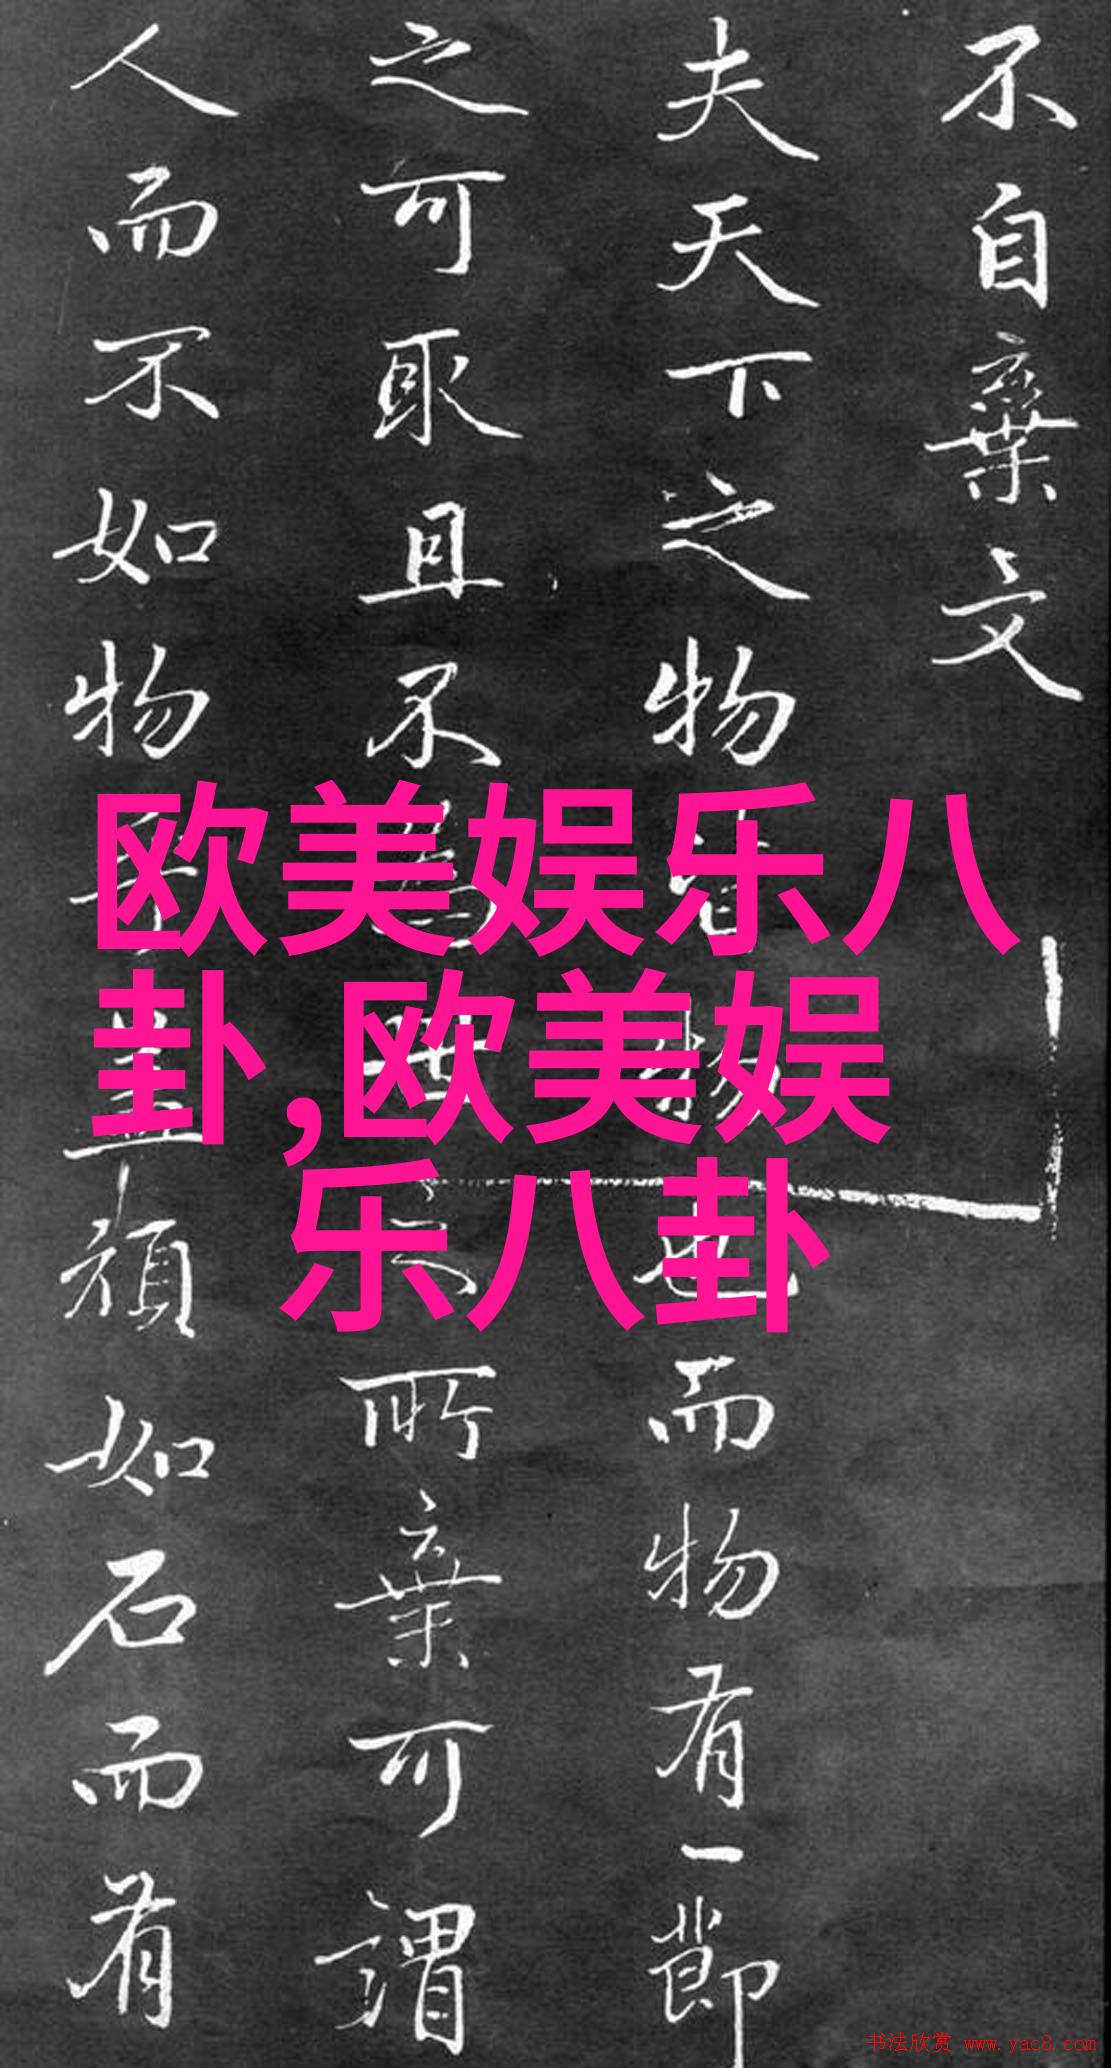 不自棄文
夫天下之物皆物也而物有一節
之可取且不為世之所棄可謂
人而不如物乎蓋頑如石而有
欧美娱乐八
卦,欧美娱
乐八卦
书法欣赏 www.yac8.com